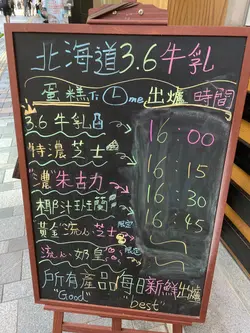 北海道3.6牛乳
蛋糕Ti Lme出爐時間
3.6牛乳 16:00
特濃芝士 16:15
"濃"朱古力 16:30
椰汁班蘭 16:45
黃金流心芝士 限定
流心奶皇 限定
所有產品每日新鮮出爐
"Good" "best"